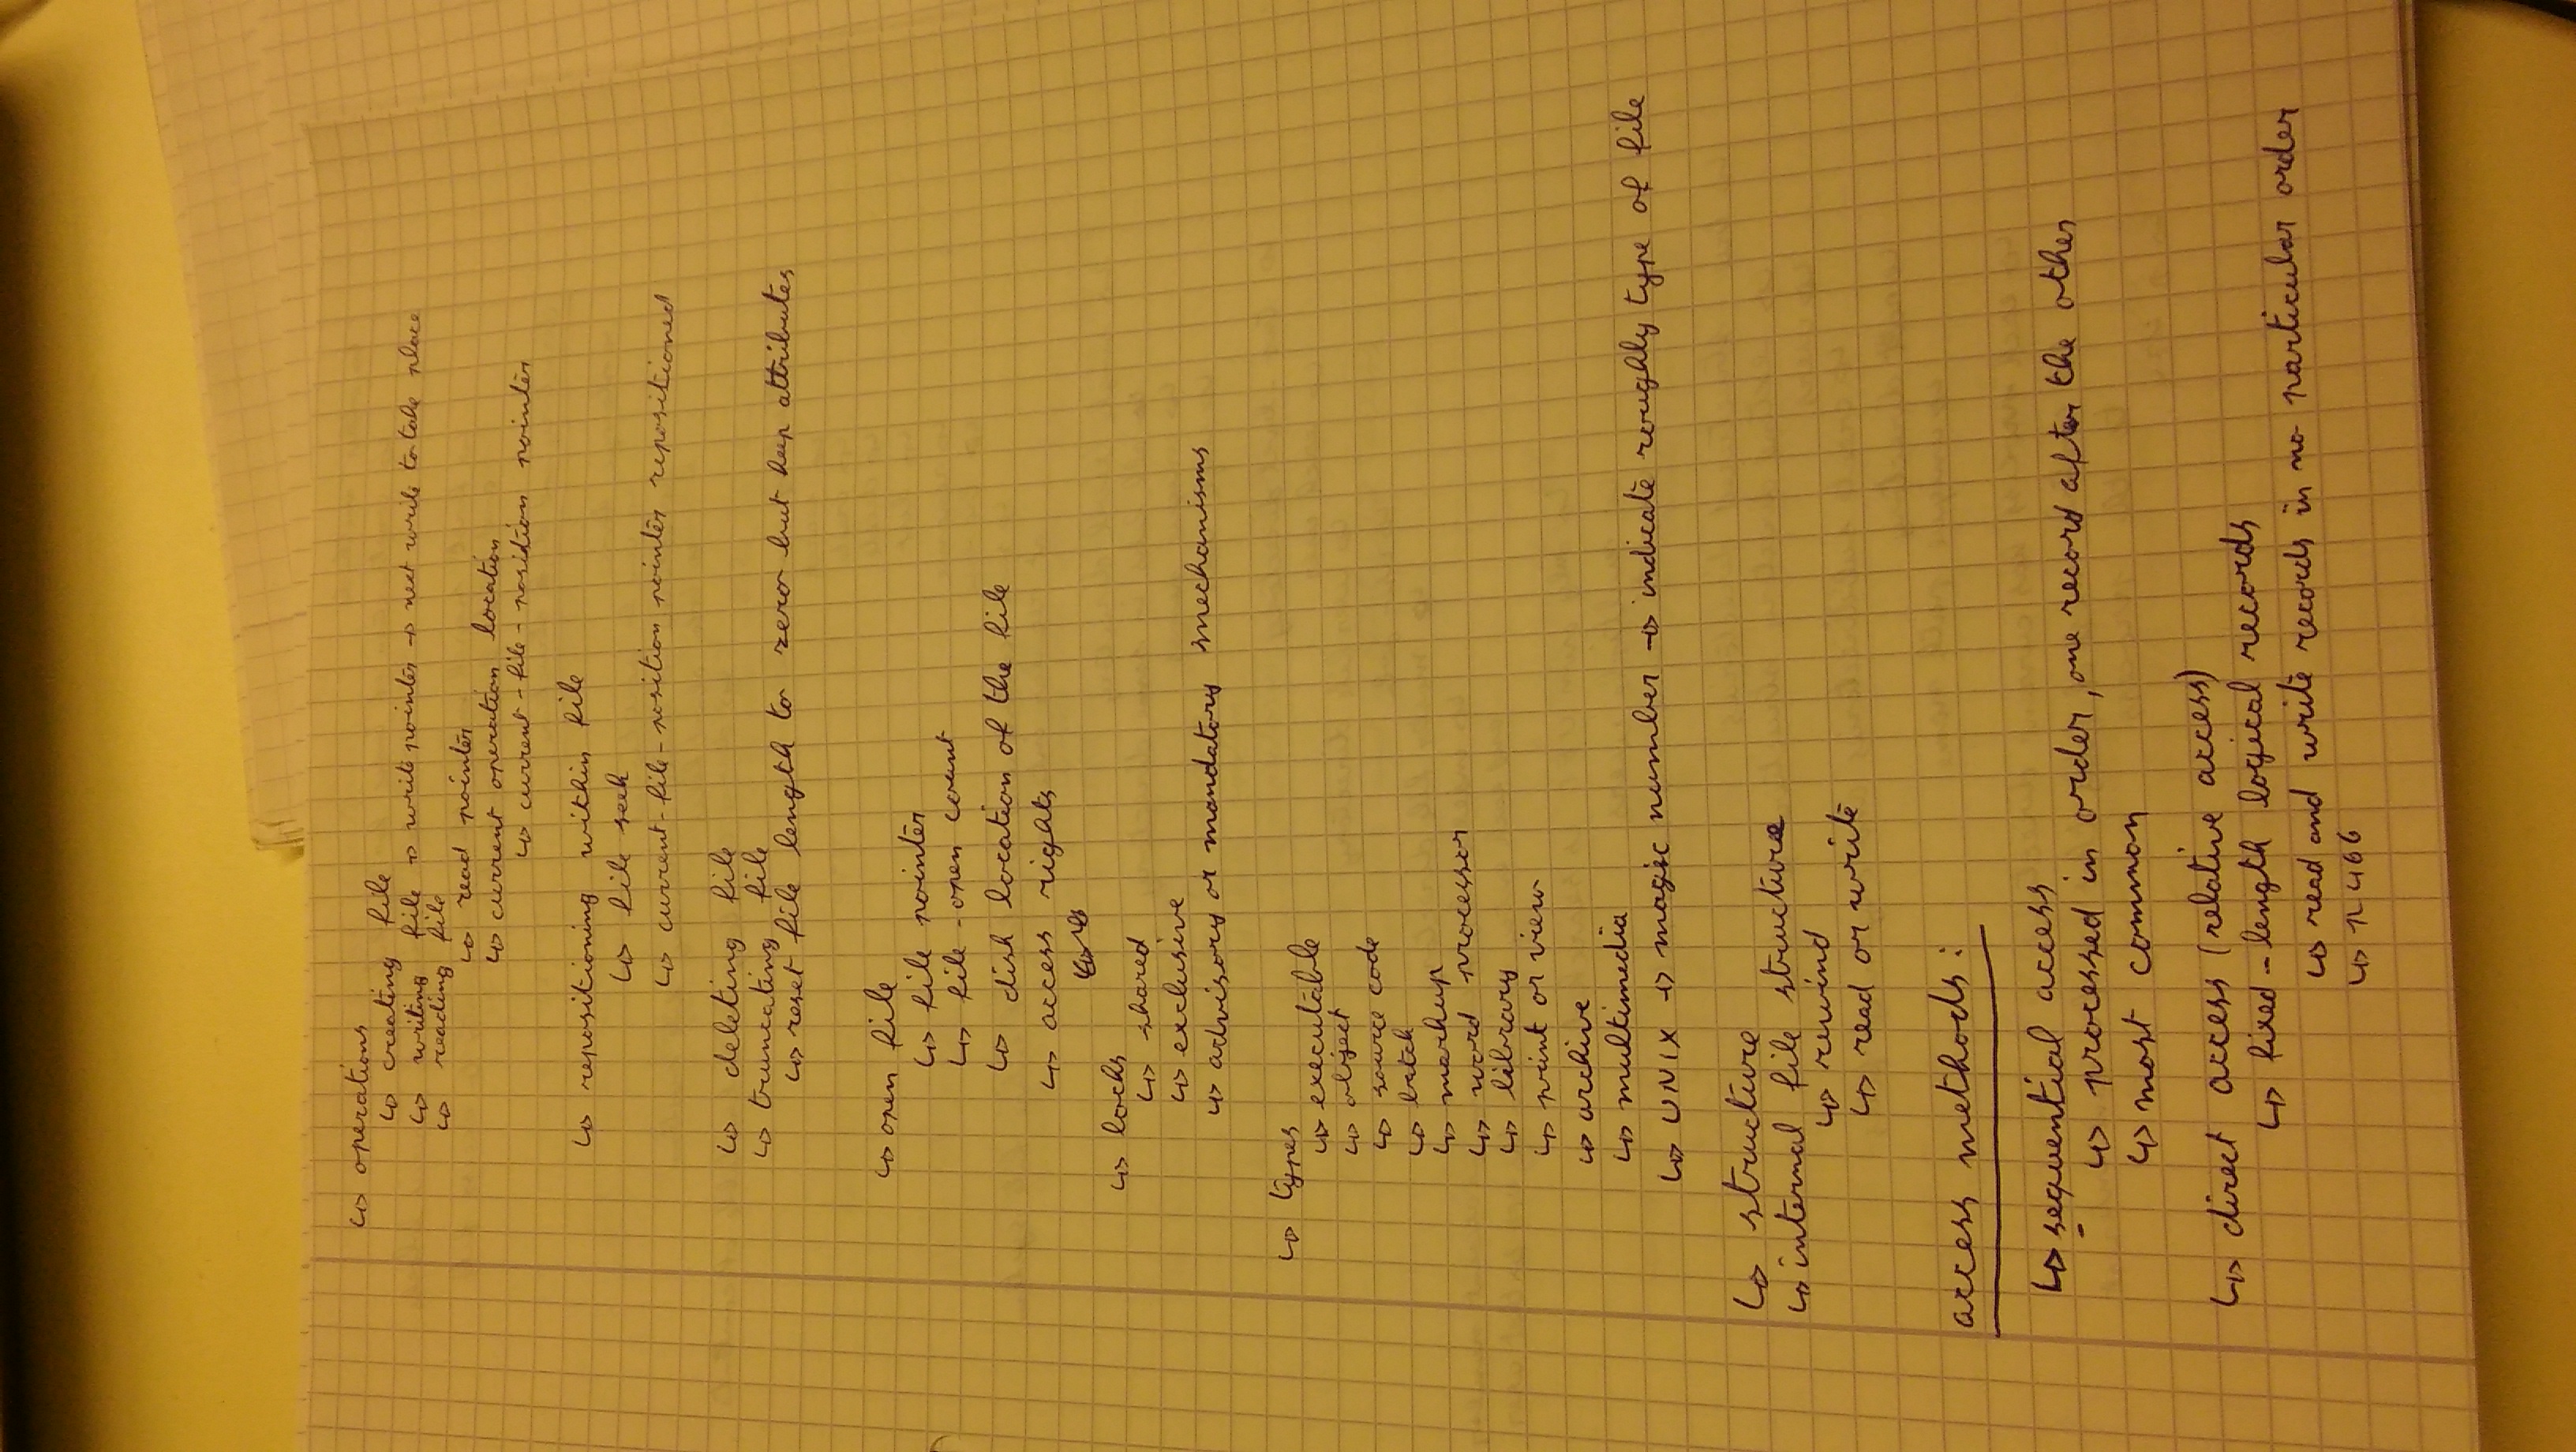 ↳ operations
↳ creating file
↳ writing file → write pointer → next write to take place
↳ reading file
↳ read pointer
↳ current operation location
↳ current-file-position pointer
↳ repositioning within file
↳ file seek
↳ current-file-position pointer repositioned
↳ deleting file
↳ truncating file
↳ reset file length to zero but keep attributes
↳ open file
↳ file pointer
↳ file-open count
↳ disk location of the file
↳ access rights
↳ locks
↳ shared
↳ exclusive
↳ advisory or mandatory mechanisms
↳ types
↳ executable
↳ object
↳ source code
↳ batch
↳ markup
↳ word processor
↳ library
↳ print or view
↳ archive
↳ multimedia
↳ UNIX → magic number → indicate roughly type of file
↳ structure
↳ internal file structure
↳ rewind
↳ read or write
access methods:
↳ sequential access
↳ processed in order, one record after the other
↳ most common
↳ direct access (relative access)
↳ fixed-length logical records
↳ read and write records in no particular order
↳ p 466